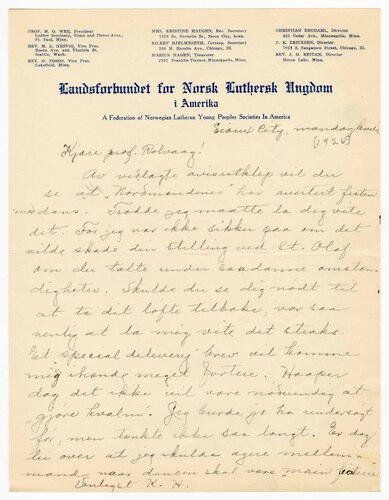 PROF. M. O. WEE, President
Luther Seminary, Como and Pierce Aves.,
St. Paul, Minn.
REV. M. L. NESVIG, Vice Pres.
Boren Ave. and Virginia St.
Seattle, Wash.
REV. O. FOSSO, Vice Pres.
Lakefield, Minn.
MRS. KRISTINE HAUGEN, Rec. Secretary
1310 So. Cornelia St., Sioux City, Iowa.
EILERT HJELMESETH, Corresp. Secretary
MARIUS HAGEN, Treasurer
2921 Franklin Terrace, Minneapolis, Minn.
CHRISTIAN BRODAHL, Director
625 Cedar Ave., Minneapolis, Minn.
P. E. ERICKSEN, Director
1923 S. Sangamon Street, Chicago, Ill.
REV. J. O. REITAN, Director
Eben Ezer, Brush, Colo.
Landsforbundet for Norsk Luthersk Ungdom
i Amerika
A Federation of Norwegian Lutheran Young Peoples Societies In America
Sioux City, mandag kveld
[1926]
Kjære prof. Rölvaag!
Av vedlagte avisutklip vil du
se at "Nordmændenes" har avertert festen
med dans. Trodde jeg maatte la dig vite
det. For jeg var ikke sikker paa om det
vilde skade din stilling ved St. Olaf
om du talte under saadanne omstæn
digheter. Skulde du se dig nödt til
at ta dit löfte tilbake, vær saa
venlig at la mig vite det straks.
Et "special delivery" brev vil komme
mig ihænde meget fortere. Haaper
dog det ikke vil være nödvendig at
gjöre kvalm. Jeg burde jo ha undersögt
för, men tænkte ikke saa langt. Er dog
lei over at jeg skulde agere mellem-
mand naar dansen skal være "main feature"
Venligst K. H.